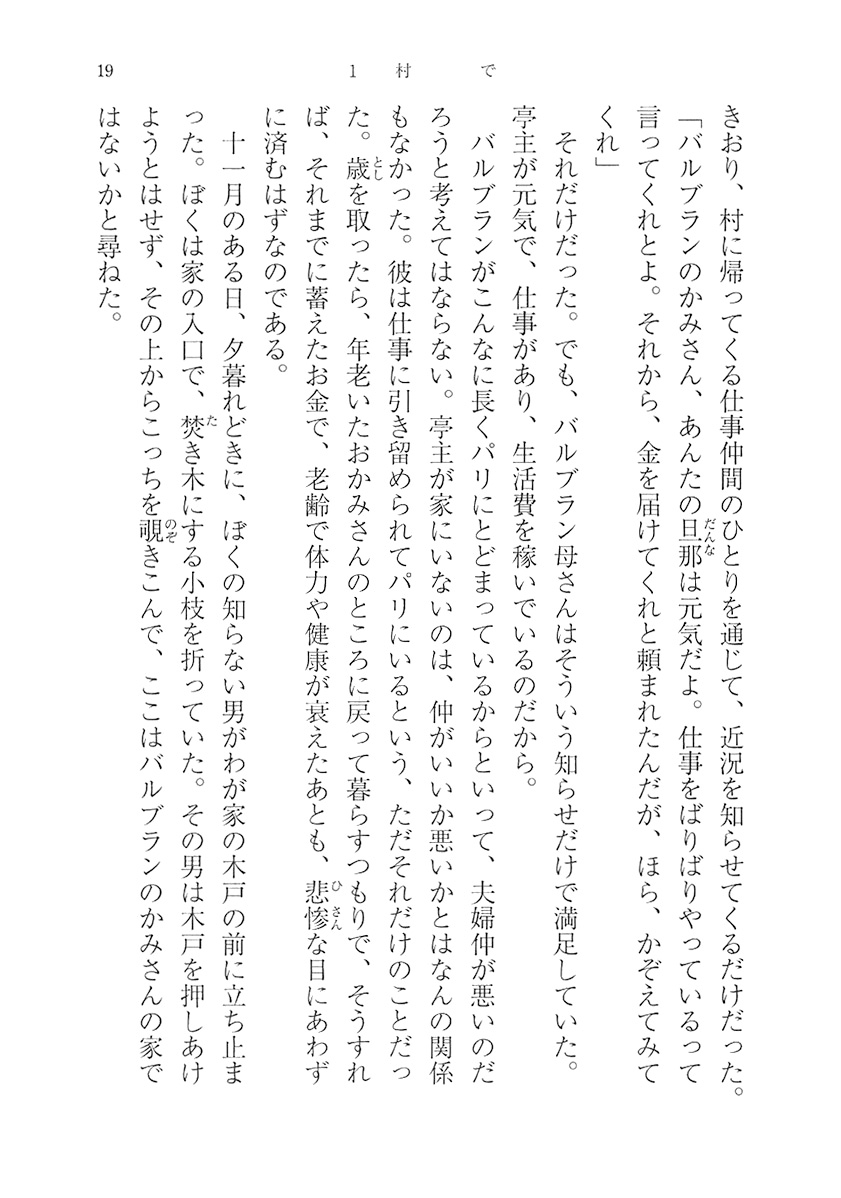 19
1 村で
きおり、村に帰ってくる仕事仲間のひとりを通じて、近況を知らせてくるだけだった。
「バルブランのかみさん、あんたの旦那は元気だよ。仕事をばりばりやっているって
言ってくれとよ。それから、金を届けてくれと頼まれたんだが、ほら、かぞえてみて
くれ」
それだけだった。でも、バルブラン母さんはそういう知らせだけで満足していた。
亭主が元気で、仕事があり、生活費を稼いでいるのだから。
バルブランがこんなに長くパリにとどまっているからといって、夫婦仲が悪いのだ
ろうと考えてはならない。亭主が家にいないのは、仲がいいか悪いかとはなんの関係
もなかった。彼は仕事に引き留められてパリにいるという、ただそれだけのことだっ
た。歳を取ったら、年老いたおかみさんのところに戻って暮らすつもりで、そうすれ
ば、それまでに蓄えたお金で、老齢で体力や健康が衰えたあとも、悲惨な目にあわず
に済むはずなのである。
十一月のある日、夕暮れどきに、ぼくの知らない男がわが家の木戸の前に立ち止ま
った。ぼくは家の入口で、焚き木にする小枝を折っていた。その男は木戸を押しあけ
ようとはせず、その上からこっちを覗きこんで、ここはバルブランのかみさんの家で
はないかと尋ねた。